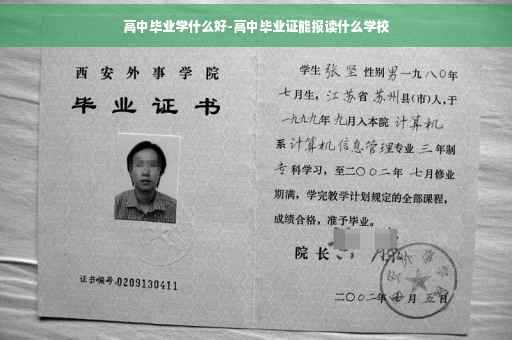 高中毕业学什么好-高中毕业证能报读什么学校
西安外事学院
毕业证书
证书编号:0209130411
学生 张坚 性别 男 一九八〇年
七月生, 江苏省 苏州县(市)人,于
一九九九年 九月入本院 计算机
系 计算机信息管理 专业 三 年制
专科学习, 至二〇〇二年 七月修业
期满, 学完教学计划规定的全部课程,
成绩合格, 准予毕业。
院长
二〇〇二年 月 五日